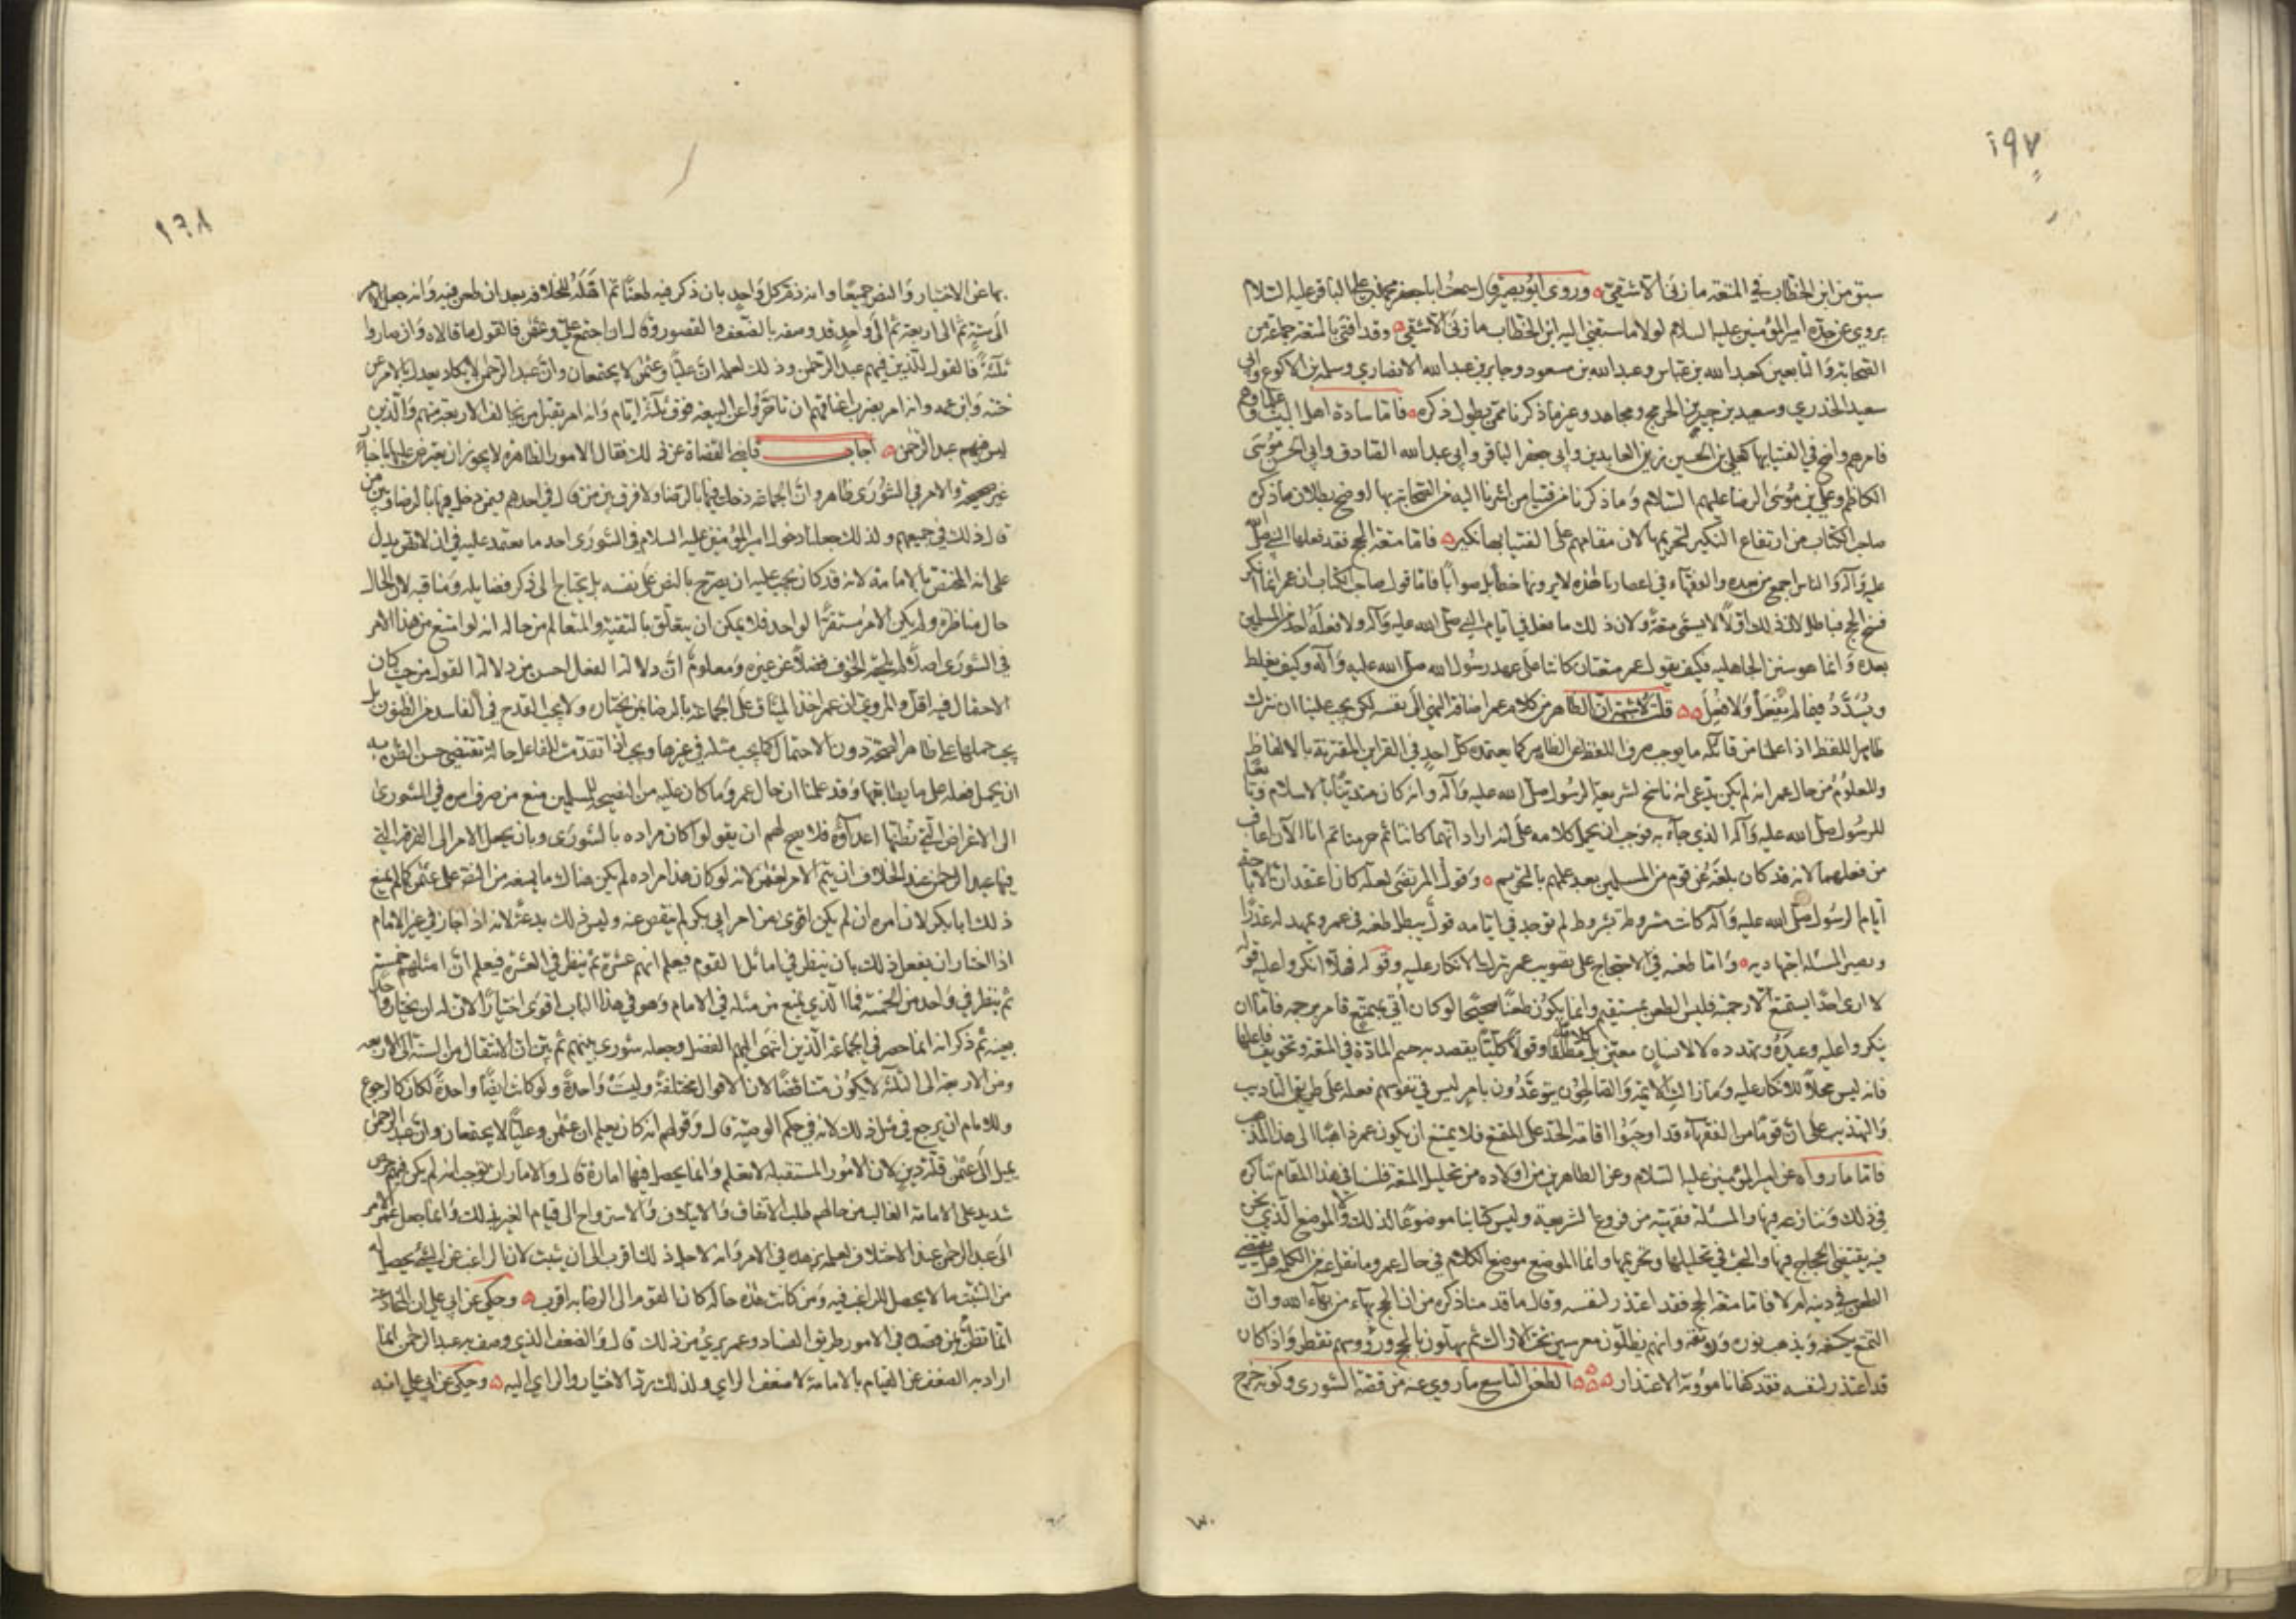 ١٩٧
سبق من ابن الخطاب في المتعة ما زنى الا شقي وروى ابو بصير قال سمعت ابا جعفر محمد بن علي الباقر عليه السلام
يروي عن جده امير المؤمنين عليه السلام لولا ما سبقني اليه ابن الخطاب ما زنى الا شقي وقد افتى بالمتعة جماعة من
الصحابة والتابعين كعبد الله بن عباس وعبد الله بن مسعود وجابر بن عبد الله الانصاري وسلمة بن الاكوع وابي
سعيد الخدري وسعيد بن جبير وابن جريج ومجاهد وغير ما ذكرنا ممن يطول ذكره فاما سادة اهل البيت وعلماؤهم
فامرهم واضح في الفتيا بها كعلي بن الحسين زين العابدين وابي جعفر الباقر وابي عبد الله الصادق وابي الحسن موسى
الكاظم وعلي بن موسى الرضا عليهم السلام وما ذكرنا من فتيا من اشرنا اليه من الصحابة بها اوضح بطلان ما ذكره
صاحب الكتاب من ارتفاع النكير لتحريمها لان مقامهم على الفتيا بها نكير فاما متعة الحج فقد فعلها النبي صلى الله
عليه وآله والناس اجمع من بعده والفقهاء في اعصارنا هذه لا يرونها خطأ بل صوابا فاما قول صاحب الكتاب ان عمر انما انكر
فسخ الحج فباطل لان ذلك اولا لا يسمى متعة ولان ذلك ما فعل في ايام النبي صلى الله عليه وآله ولا فعله احد من المسلمين
بعده وانما هو من سنن الجاهلية فكيف يقول عمر متعتان كانتا على عهد رسول الله صلى الله عليه وآله وكيف يغلظ
ويشدد فيما لم يفعل ولا فعل قلت لا شبهة ان الظاهر من كلام عمر اضافة النهي الى نفسه لكن يجب علينا ان نترك
ظاهر اللفظ اذا علمنا من قائله ما يوجب صرف اللفظ عن الظاهر كما يعتمده كل احد في القرائن المقترنة بالالفاظ
والمعلوم من حال عمر انه لم يكن يدعي انه ناسخ لشريعة الرسول صلى الله عليه وآله وانه كان متدينا بالاسلام وتابعا
للرسول صلى الله عليه وآله الذي جاء به فوجب ان يحمل كلامه على انه اراد انهما كانتا ثم حرمتا ثم انا الآن اعاقب
من فعلهما لانه قد كان بلغه عن قوم من المسلمين بعد علمهم بالتحريم وقول المرتضى لعله كان اعتقد ان الاباحة
ايام الرسول صلى الله عليه وآله كانت مشروطة بشروط لم توجد في ايامه قول يبطل طعنه في عمر ويمهد له عذرا
ويصير المسئلة اجتهادية واما طعنه في الاحتجاج على تصويب عمر بترك الانكار عليه وقوله فهلا انكروا عليه قوله
لا ارى احدا يستمتع الا رجمته فليس الطعن بمستقيم وانما يكون طعنا صحيحا لو كان اتي بمتمتع فامر برجمه فاما ان
ينكروا عليه وعيده وتهدده لا لانسان معين بل كلاما مطلقا وقولا كليا يقصد به حسم المادة في المتعة وتخويف فاعلها
فانه ليس محلا للانكار عليه وما زالت الائمة والصالحون يتوعدون بامر ليس في نفوسهم فعله على طريق التاديب
والتهذيب على ان قوما من الفقهاء قد اوجبوا اقامة الحد على المتمتع فلا يمتنع ان يكون عمر ذاهبا الى هذا المذهب
فاما ما رواه عن امير المؤمنين عليه السلام وعن الطاهرين من اولاده من تحليل المتعة فلسنا في هذا المقام نناكره
في ذلك وننازعه فيها والمسئلة فقهية من فروع الشريعة وليس كتابنا موضوعا لذلك ولا الموضع الذي نحن
فيه يقتضي الحجاج فيها والبحث في تحليلها وتحريمها وانما الموضع موضع الكلام في حال عمر وما نقل عنه من الكلمة هل يقتضي
الطعن في دينه ام لا فاما متعة الحج فقد اعتذر لنفسه وقال ما قد منا ذكره من ان الحج بهاء من بهاء الله وان
التمتع يكسفه ويذهب نوره ورونقه وانهم يظلون معرسين تحت الاراك ثم يهلون بالحج ورؤوسهم تقطر واذا كان
قد اعتذر لنفسه فقد كفانا مؤونة الاعتذار الطعن التاسع ما روي عنه من قصة الشورى وكونه خرج
١٩٨
بها عن الاختيار والنص جميعا وانه ذم كل واحد بان ذكر فيه طعنا ثم اهله للخلافة بعد ان طعن فيه وانه جعل الامر
الى ستة ثم الى اربعة ثم الى واحد قد وصفه بالضعف والقصور وقال ان اجتمع علي وعثمن فالقول ما قالاه وان صاروا
ثلثة فالقول للذين فيهم عبد الرحمن وذلك لعلمه ان عليا وعثمن لا يجتمعان وان عبد الرحمن لا يكاد يعدل بالامر عن
ختنه وابن عمه وانه امر بضرب اعناقهم ان تاخروا عن البيعة فوق ثلثة ايام وانه امر بقتل من يخالف الاربعة منهم والذين
ليس فيهم عبد الرحمن اجاب قاضي القضاة عن ذلك فقال الامور الظاهرة لا يجوز ان يعترض عليها باخبار
غير صحيحة والامر في الشورى ظاهر وان الجماعة دخلت فيها بالرضا ولا فرق بين من قال في احدهم ومن دخل فيها بالرضا وبين من
قال ذلك في جميعهم ولذلك جعلنا دخول امير المؤمنين عليه السلام في الشورى احد ما يعتمد عليه في ان لا نص يدل
على انه المختص بالامامة لانه قد كان يجب عليه ان يصرح بالنص على نفسه بل يحتاج الى ذكر فضايله ومناقبه لان الحال
حال مناظرة ولم يكن الامر مستقرا لواحد فلا يمكن ان يتعلق بالتقية والمتعالم من حاله انه لو امتنع من هذا الامر
في الشورى اصلا لم يلحقه الخوف فضلا عن غيره ومعلوم ان دلالة الفعل احسن من دلالة القول من حيث كان
الاحتمال فيه اقل والمروي ان عمر اخذ الميثاق على الجماعة بالرضا بمن يختاره ولا يجب القدح في الفاسد من الظنون بل
يجب حملها على ظاهر الصحة دون الاحتمال كما يجب مثله في غيرها ويجب اذا تقدمت للفاعل حالة تقتضي حسن الظن به
ان يحمل فعله على ما يطابقها وقد علمنا ان حال عمر وما كان عليه من النصيحة للمسلمين منع من صرف امره في الشورى
الى الاغراض التي تظنها اعداؤه فلا يصح لهم ان يقولوا كان مراده بالشورى وبان يجعل الامر الى الفرقة التي
فيها عبد الرحمن عند الخلاف ان يتم الامر لعثمن لانه لو كان هذا مراده لم يكن هناك ما يمنعه من النص على عثمن كما لم يمنع
ذلك ابا بكر لان امره ان لم يكن اقوى من امر ابي بكر لم ينقص عنه وليس ذلك بدعة لانه اذا جاز في غير الامام
اذا اختار ان يفعل ذلك بان ينظر في اماثل القوم فيعلم انهم عشرة ثم ينظر في العشرة فيعلم ان امثلهم خمسة
ثم ينظر في واحد من الخمسة فما الذي يمنع من مثله في الامام وهو في هذا الباب اقوى اختيارا لان له ان يختار واحدا
بعينه ثم ذكر انه انما حصر في الجماعة الذين انتهى اليهم الفضل وجعله شورى بينهم ثم بين ان الانتقال من الستة الى الاربعة
ومن الاربعة الى الثلثة لا يكون متناقضا لان الاقوال مختلفة وليست واحدة ولو كانت ايضا واحدة لكان كالرجوع
وللامام ان يرجع في مثل ذلك لانه في حكم الوصية قال وقولهم انه كان يعلم ان عثمن وعليا لا يجتمعان وان عبد الرحمن
يميل الى عثمن قلة دين لان الامور المستقبلة لا تعلم وانما يحصل فيها امارة قال والامارات توجب انه لم يكن فيهم حرص
شديد على الامامة الغالب من حالهم طلب الاتفاق والائتلاف والاسترواح الى قيام الغير بذلك وانما جعل عمر الامر
الى عبد الرحمن عند الاختلاف لعلمه بزهده في الامر وانه لاجل ذلك اقرب الى ان يثبت لان الراغب عن الشيء يحصل له
من التثبت ما لا يحصل للراغب فيه ومن كانت هذه حاله كان القوم الى الرضا به اقرب وحكى عن ابي علي ان المخادعة
انما تظن بمن قصده في الامور طريق الفساد وعمر بريء من ذلك قال والضعف الذي وصف به عبد الرحمن انما
اراد به الضعف عن القيام بالامامة لا ضعف الراي ولذلك رد الاختيار والراي اليه وحكى عن ابي علي انه